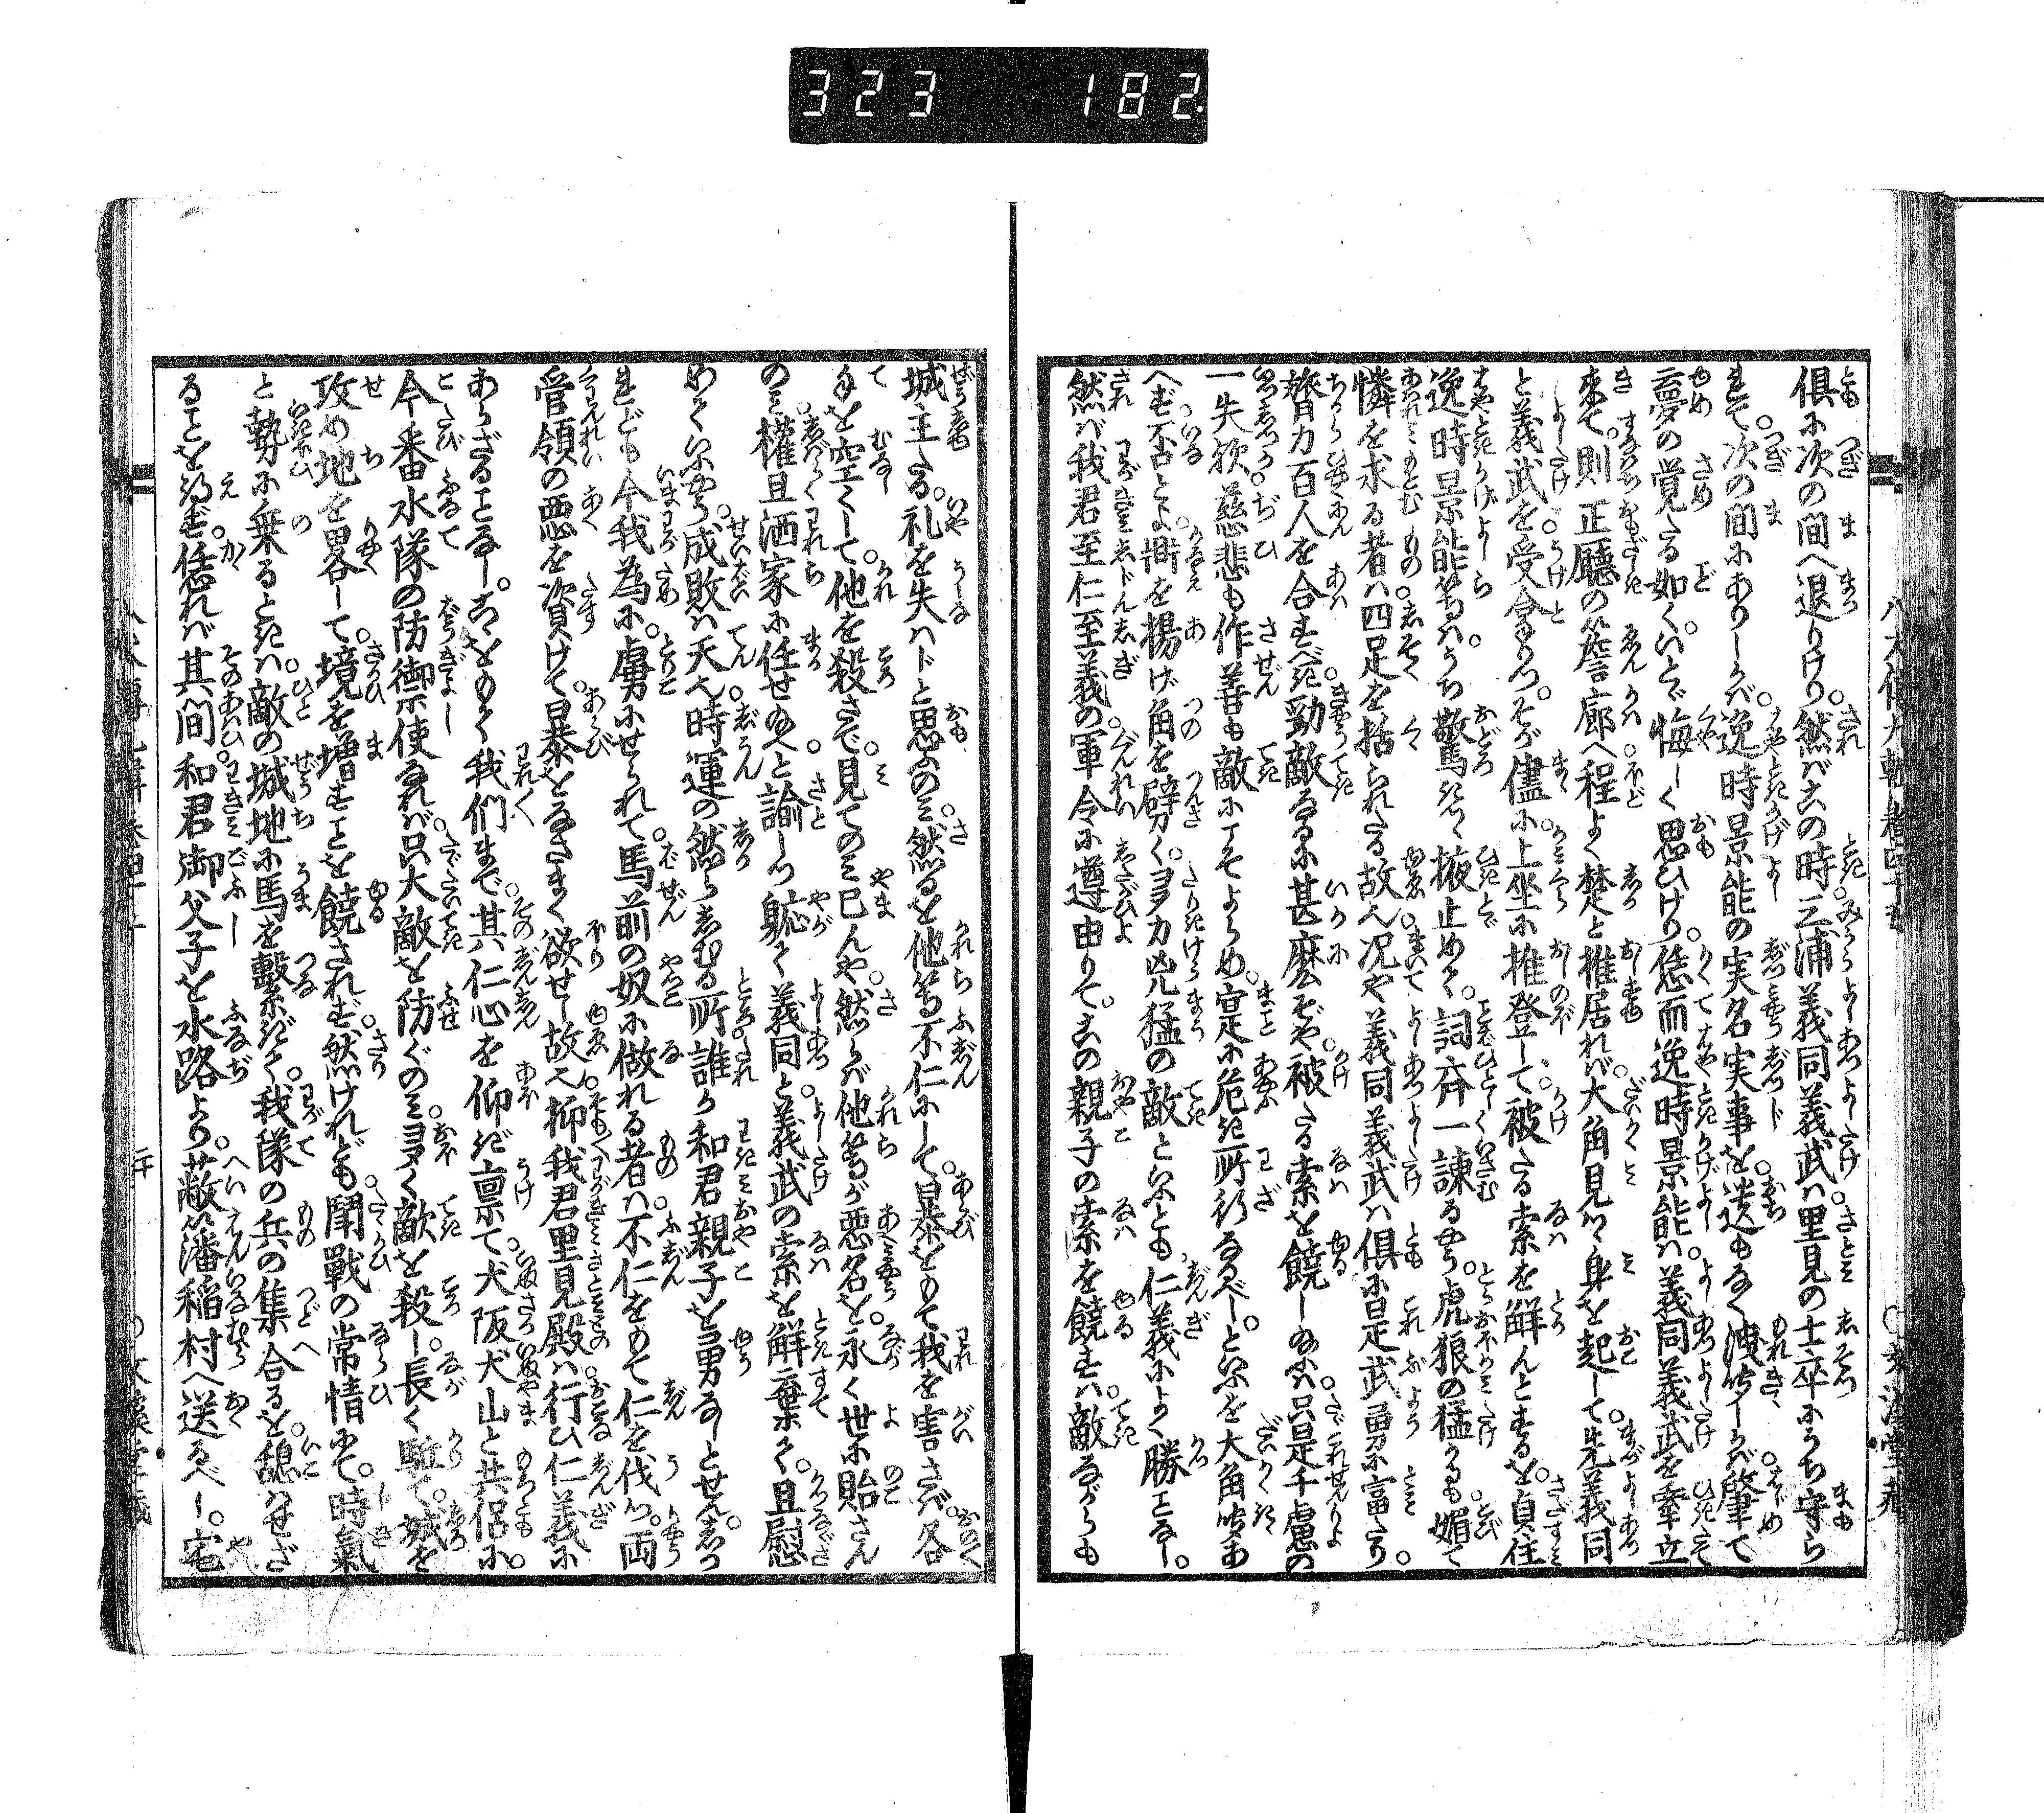 323 182
倶に次の間へ退りけり。然ば又の時三浦義同義武は里見の士卒にうち守ら
れて。次の間にありしかば。逸時景能の実名実事を。送もなく洩聞しかば。肇て
夢の覚たる如く。いとゞ悔しく思ひけり。恁而逸時景能は。義同義武を牽立
来て。則正廳の簷廊へ程よく楚と推居れば。大角見つゝ身を起して。先義同
と義武を。受令りつ。そが儘に。上坐に推登して。被たる索を解んとするを。貞住
逸時景能等は。うち驚きつゝ。掖止めて。詞齊一諫るやう。虎狼の猛かるも。媚て
憐を求る者は。四足を括られたる故也。况や義同義武は。倶に是武勇に富たり。
膂力百人を合すべき。勁敵なるに甚麽ぞや。被たる索を饒し給ふは。只是千慮の
一失欤。慈悲も作善も敵にこそよらめ。寔に危き所行なるべし。といふを大角听あ
へず。否とよ。斝を揚げ角を劈く。ヨヲカ兇猛の敵といふとも。仁義によく勝ことなし。
然ば我君至仁至義の。軍令に遵由りて。この親子の索を饒すは。敵ながらも
城主たる。礼を失はじと思ふのみ。然るを他等不仁にして。暴をもて我を害さば。各
手を空くして。他を殺さで。見てのみ已んや。然らば他等が悪名を。永く世に貽さん
のみ。權且洒家に任せ給へ。と諭しつ躮て義同と。義武の索を解棄て。且慰
めていふやう。成敗は天也。時運の然らしむる所。誰か和君親子を勇なしとせん。しか
れども今我為に。虜にせられて。馬前の奴に做れる者は。不仁をもて仁を伐つ。両
管領の悪を資けて。暴をなさまく欲せし故也。抑我君里見殿は。行ひ仁義に
あらざることなし。こゝをもて我們まで。其仁心を仰ぎ禀て。犬阪犬山と共侶に。
今番水隊の防御使なれば。只大敵を防ぐのみ。ヨヲく敵を殺し。長く駈て。城を
攻め地を畧して。境を増すことを饒されず。然けれども鬪戰の常情にて。時氣
と勢に乗るときは。敵の城地に馬を繋ぎて。我隊の兵の集合るを。憩はせざ
ることを得ず。恁れば其間和君御父子を。水路より。敝藩稲村へ送るべし。宅